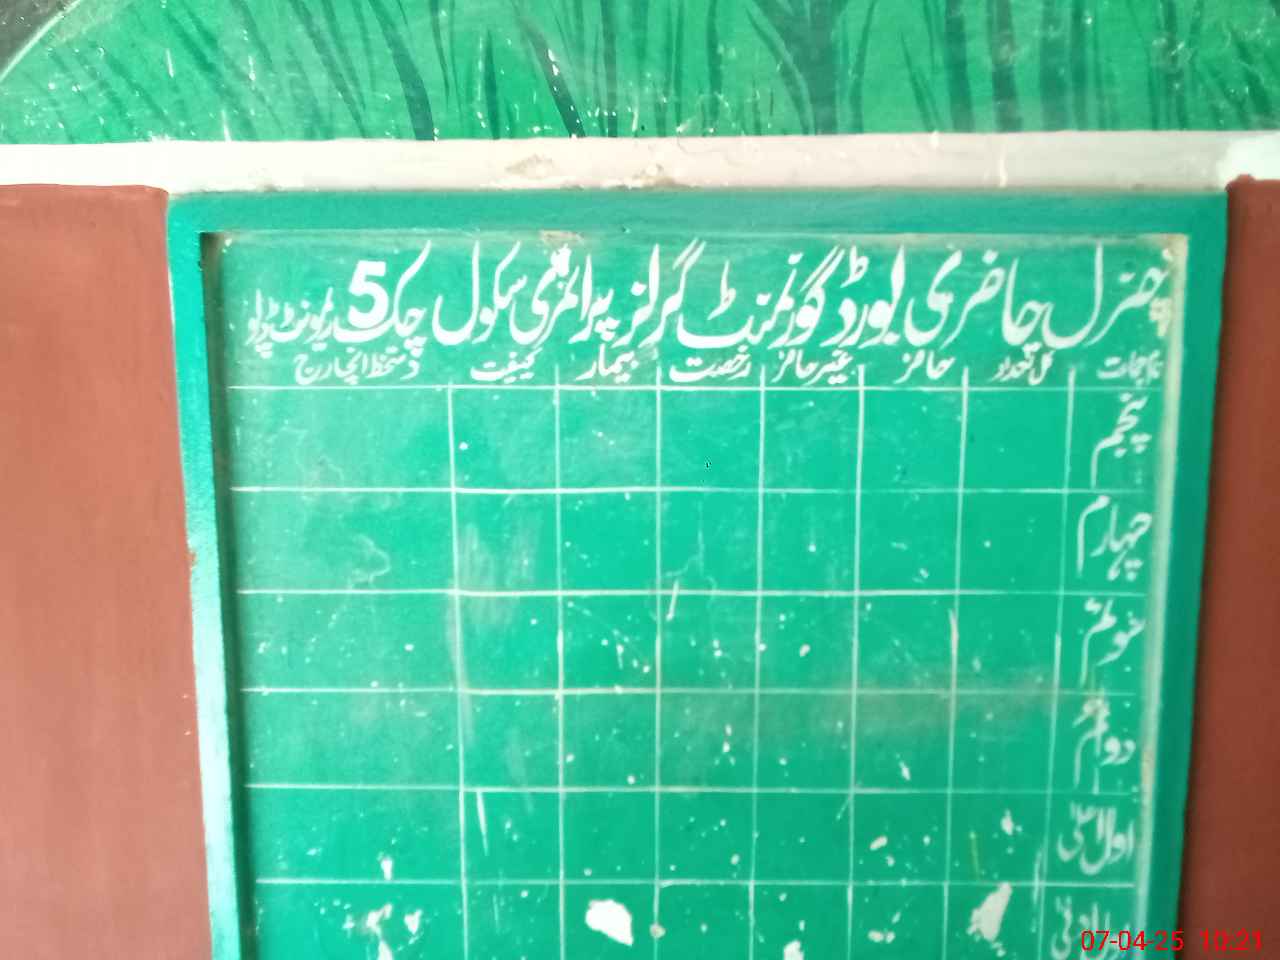 جنرل حاضری بورڈ گورنمنٹ گرلز پرائمری سکول چک 5 ریمونٹ ڈپو
کل تعداد حاضر غیر حاضر رخصت بیمار کیفیت دستخط انچارج
پنجم
چہارم
سوئم
دوئم
اول اعلیٰ
اول ادنیٰ
07-04-25 10:21